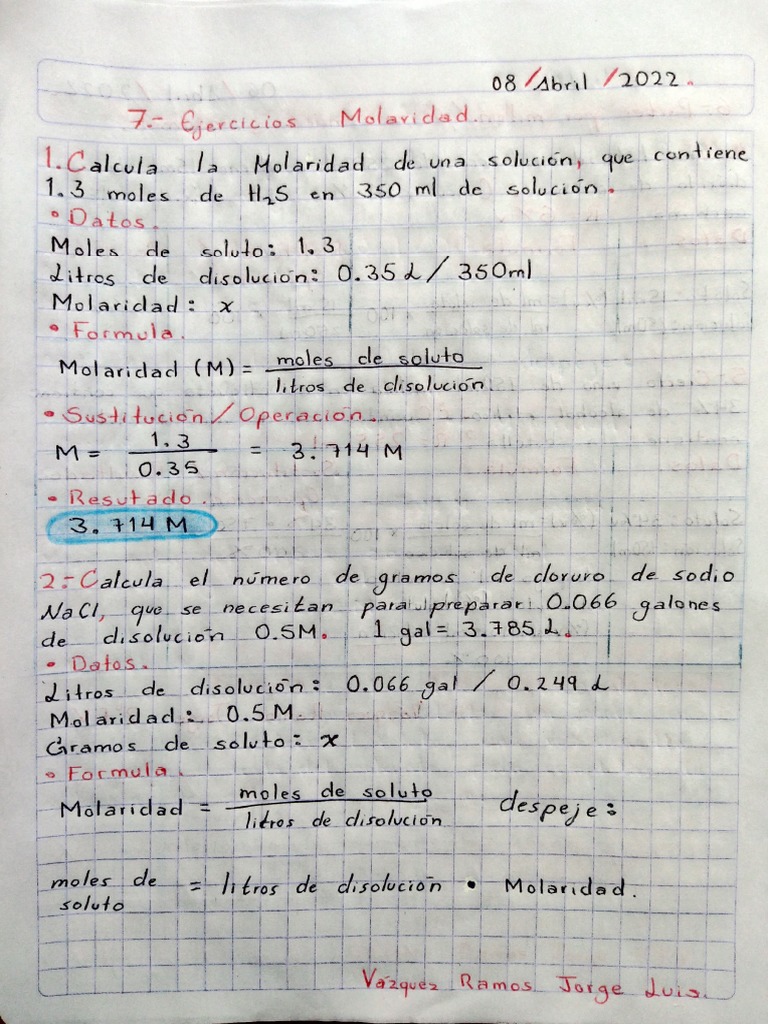 08/Abril/2022.
7.- Ejercicios Molaridad.
1. Calcula la Molaridad de una solución, que contiene
1.3 moles de H₂S en 350 ml de solución.
• Datos.
Moles de soluto: 1.3
Litros de disolución: 0.35 L / 350ml
Molaridad: x
• Formula.
Molaridad (M) = moles de soluto
litros de disolución
• Sustitución/Operación.
M = 1.3 = 3.714 M
0.35
• Resutado.
3.714 M
2.- Calcula el número de gramos de cloruro de sodio
NaCl, que se necesitan para preparar 0.066 galones
de disolución 0.5M. 1 gal = 3.785 L.
• Datos.
Litros de disolución: 0.066 gal / 0.249 L
Molaridad: 0.5 M.
Gramos de soluto: x
• Formula.
Molaridad = moles de soluto despeje:
litros de disolución
moles de = litros de disolución • Molaridad.
soluto
Vázquez Ramos Jorge Luis.